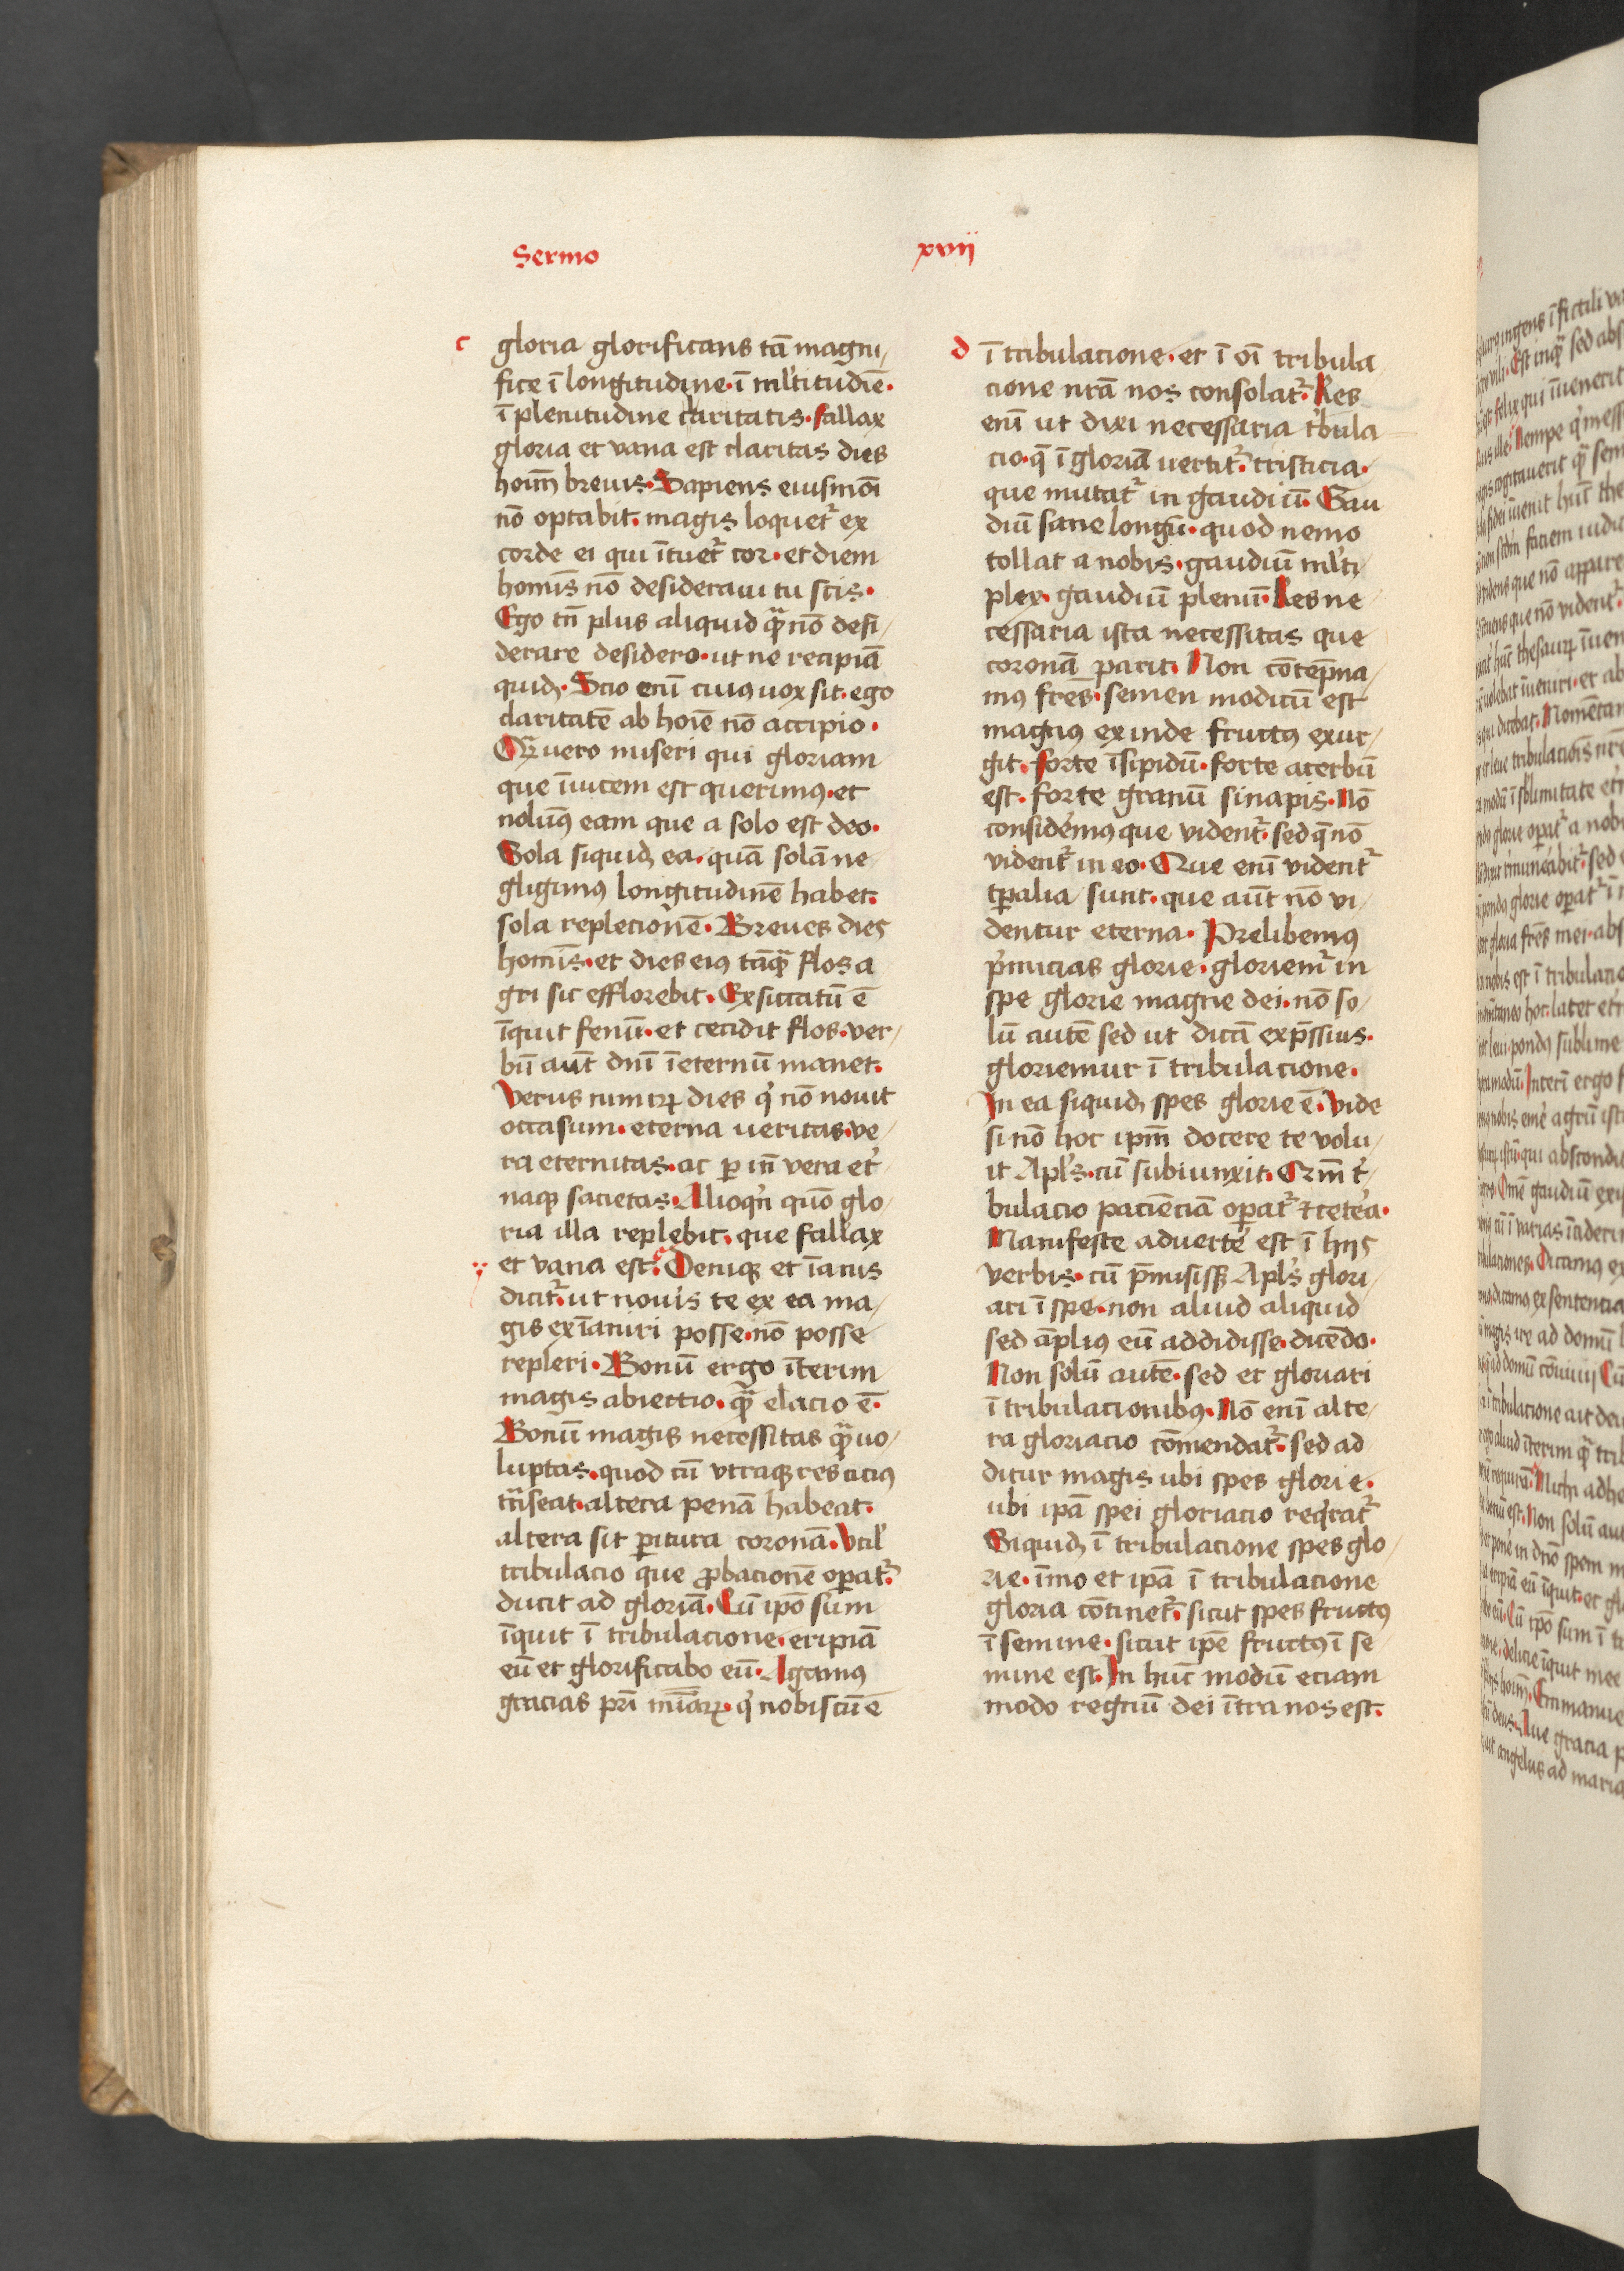 Sermo
xvij
c
gloria glorificans tā magni
fice ī longitudine · ī ml'titudīe ·
ī plenitudine claritatis · fallax
gloria et vana est claritas dies
hoīm breuis · Sapiens eiusmōi
nō optabit · magis loquet᷑ ex
corde ei qui ītuet᷑ cor · et diem
homīs nō desideraui tu scis ·
Ego tn̄ plus aliquid qᷓ nō desi
derare desidero · ut ne recipiā
quidꝫ · Scio enī cuiꝰ uox sit · ego
claritatē ab hoīe nō accipio ·
Qᷓ vero miseri qui gloriam
que īuicem est querimꝰ · et
nolumꝰ eam que a solo est deo ·
Sola siquidꝫ ea · quā solā ne
gligimꝰ longitudinē habet ·
sola replecionē · Breues dies
homīs · et dies eiꝰ tāqᷓ flos a
gri sic efflorebit · Exsiccatū ē
īquit fenū · et cecidit flos · ver
bū aut̄ dn̄i ī eternū manet ·
Verus nimirꝝ dies q' nō nouit
occasum · eterna ueritas · ve
ra eternitas · ac ꝑ in̄ vera et'
naqꝫ sacietas · Alioqn̄ quō glo
ria illa replebit · que fallax
et vana est · Deniqꝫ et īanis
dicit᷑ · ut nouis te ex ea ma
gis exīaniri posse · nō posse
repleri · Bonū ergo īterim
magis abiectio · qᷓ elacio ē ·
Bonū magis necessitas qᷓ uo
luptas · quod cū vtraqꝫ res cicꝰ
trāseat · altera penā habeat ·
altera sit ꝑitura coronā · Vtil'
tribulacio que ꝓbacionē oꝑat᷑ ·
ducit ad gloriā · Cū ipō sum
īquit ī tribulacione · eripiā
eū et glorificabo eū · Agamꝰ
gracias pr̄i mīaꝝ · q' nobiscū ē
d
ī tribulacione · et ī oī tribula
cione nr̄a nos consolat᷑ · Res
enī ut dixi necessaria t'bula
cio · q̄ ī gloriā uertit᷑ · tristicia ·
que mutat᷑ in gaudiū · Gau
diū sane longū · quod nemo
tollat a nobis · gaudiū ml'ti
plex · gaudiū plenū · Res ne
cessaria ista necessitas que
coronā parit · Non cōtep̄na
mꝰ fr̄es · semen modicū est
magnꝰ exinde fructꝰ exur
git · forte īsipidū · forte acerbū
est · forte granū sinapis · Nō
consid'emꝰ que vident᷑ · sed q̄ nō
vident᷑ in eo · Que enī vident᷑
tꝑalia sunt · que aūt nō vi
dentur eterna · Prelibemꝰ
p'micias glorie · gloriem᷑ in
spe glorie magne dei · nō so
lū autē sed ut dicā exp̄ssius ·
gloriemur ī tribulacione ·
In ea siquidꝫ spes glorie ē · Vide
si nō hoc ipm̄ docere te volu
it Apl's · cū subiunxit · Qm̄ t'
bulacio pacienciā oꝑat᷑ ⁊ cet'ea ·
Manifeste aduerte' est ī hijs
verbis · cū p̄misissꝫ Apl's glori
ari ī spe · non aliud aliquid
sed āplius eū addidisse · dicēdo ·
Non solū autē · sed et gloriari
ī tribulacionibꝰ · Nō enī alte
ra gloriacio cōmendat᷑ · sed ad
ditur magis ubi spes glorie ·
ubi ipā spei gloriacio req'rat᷑
Siquidꝫ ī tribulacione spes glo
rie · īmo et ipā ī tribulacione
gloria cōtinet᷑ · sicut spes fructꝰ
ī semine · sicut ipē fructꝰ ī se
mine est · In hūc modū eciam
modo regnū dei ītra nos est ·